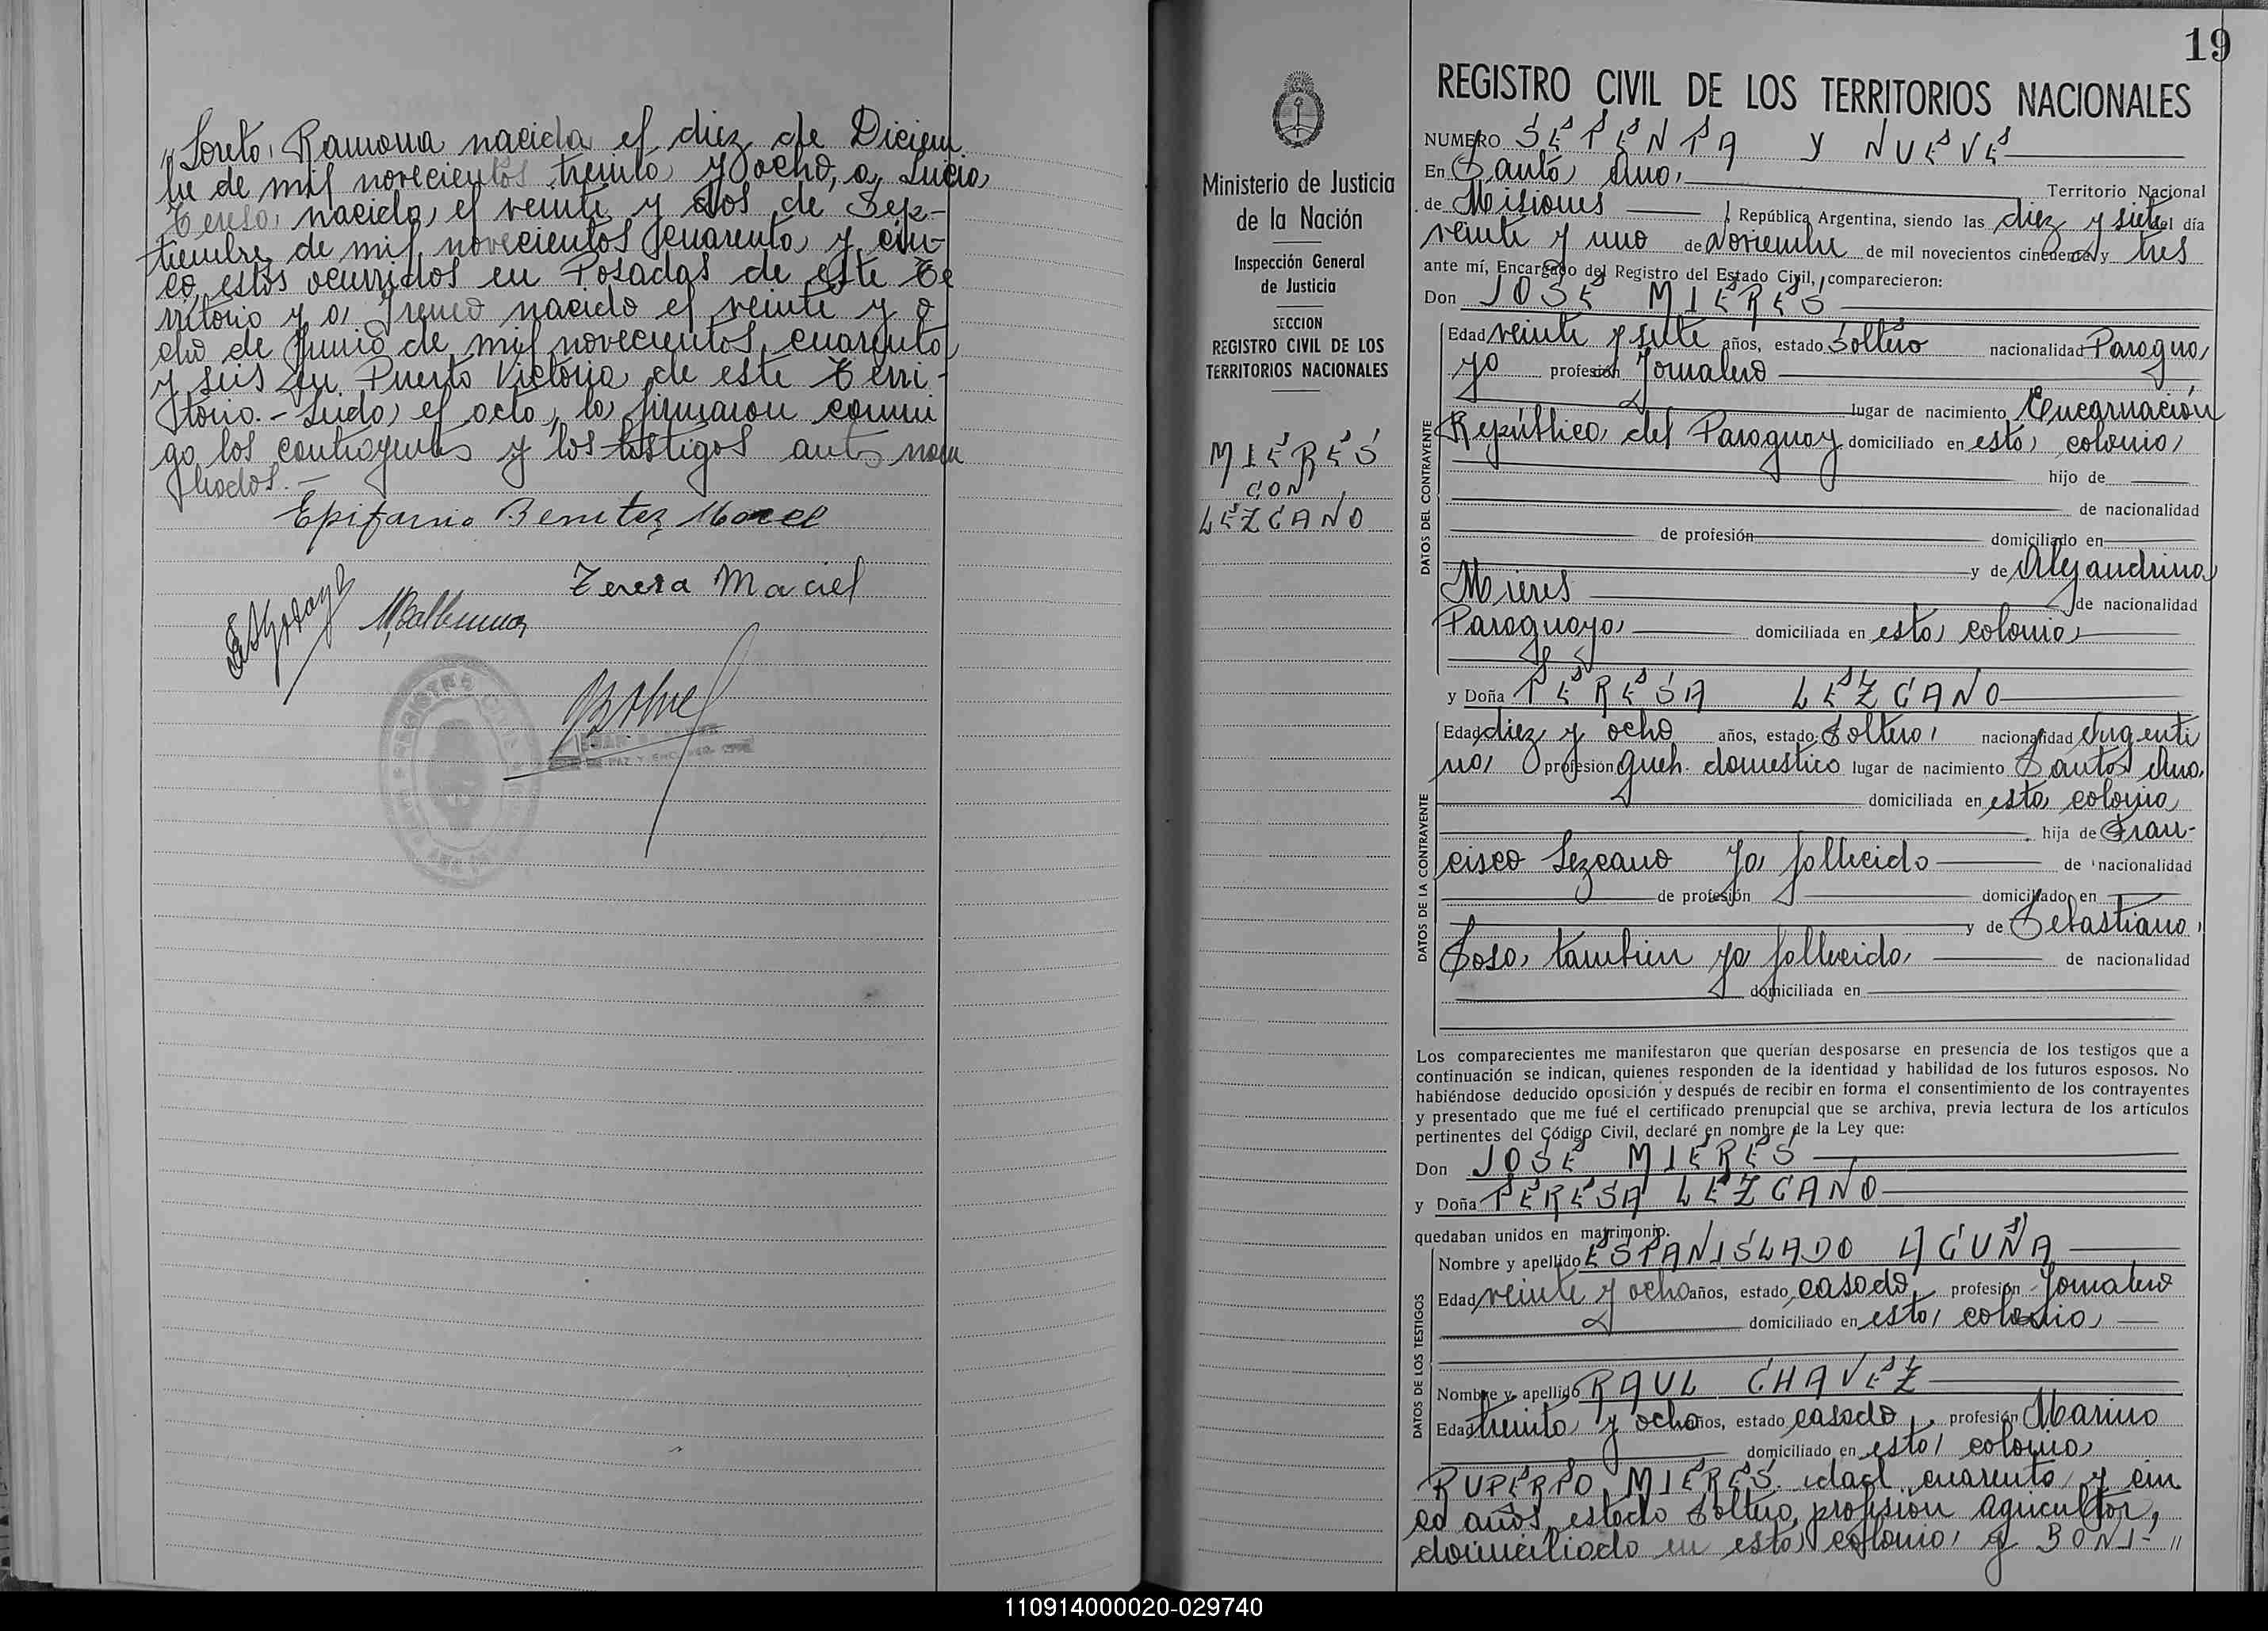 " Loreto, Ramona nacida el diez de Diciem
bre de mil novecientos treinta y ocho, a Lucia
Teresa, nacida el veinte y dos de Sep-
tiembre de mil novecientos cuarenta y cin-
co, estos ocurridos en Posadas de este Te
rritorio y a Ireneo nacido el veinte y o
cho de Junio de mil novecientos cuarenta
y seis en Puerto Victoria de este Terri-
torio.- Leida el acta, la firmaron conmi
go los contrayentes y los testigos antes nom
brados.-
Epifanio Benitez Morel
Teresa Maciel
19
REGISTRO CIVIL DE LOS TERRITORIOS NACIONALES
NUMERO SETENTA Y NUEVE
En Santa Ana, Territorio Nacional
de Misiones, República Argentina, siendo las diez y siete del día
veinte y uno de Noviembre de mil novecientos cincuenta y tres
ante mí, Encargado del Registro del Estado Civil, comparecieron:
Don JOSE MIERES
Ministerio de Justicia
de la Nación
Inspección General
de Justicia
SECCION
REGISTRO CIVIL DE LOS
TERRITORIOS NACIONALES
MIERES
CON
LEZCANO
DATOS DEL CONTRAYENTE
Edad veinte y siete años, estado Soltero nacionalidad Paragua
yo profesión Jornalero
lugar de nacimiento Encarnación
República del Paraguay domiciliado en esta colonia
hijo de
de nacionalidad
de profesión domiciliado en
y de Alejandrina
Mieres de nacionalidad
Paraguaya domiciliada en esta colonia
y Doña TERESA LEZCANO
DATOS DE LA CONTRAYENTE
Edad diez y ocho años, estado Soltera nacionalidad Argenti
na, profesión Queh. domestico lugar de nacimiento Santa Ana
domiciliada en esta colonia
hija de Fran-
cisco Lezcano ya fallecido de nacionalidad
de profesión domiciliado en
y de Sebastiana
Sosa, tambien ya fallecida, de nacionalidad
domiciliada en
Los comparecientes me manifestaron que querían desposarse en presencia de los testigos que a
continuación se indican, quienes responden de la identidad y habilidad de los futuros esposos. No
habiéndose deducido oposición y después de recibir en forma el consentimiento de los contrayentes
y presentado que me fué el certificado prenupcial que se archiva, previa lectura de los artículos
pertinentes del Código Civil, declaré en nombre de la Ley que:
Don JOSE MIERES
y Doña TERESA LEZCANO
quedaban unidos en matrimonio.
DATOS DE LOS TESTIGOS
Nombre y apellido ESTANISLADO ACUÑA
Edad veinte y ocho años, estado casado, profesión Jornalero
domiciliado en esta colonia
Nombre y apellido RAUL CHAVEZ
Edad treinta y ocho años, estado casado, profesión Marino
domiciliado en esta colonia
RUPERTO MIERES edad cuarenta y cin
co años, estado Soltero, profesion agricultor,
domiciliado en esta colonia y BONI- "
110914000020-029740